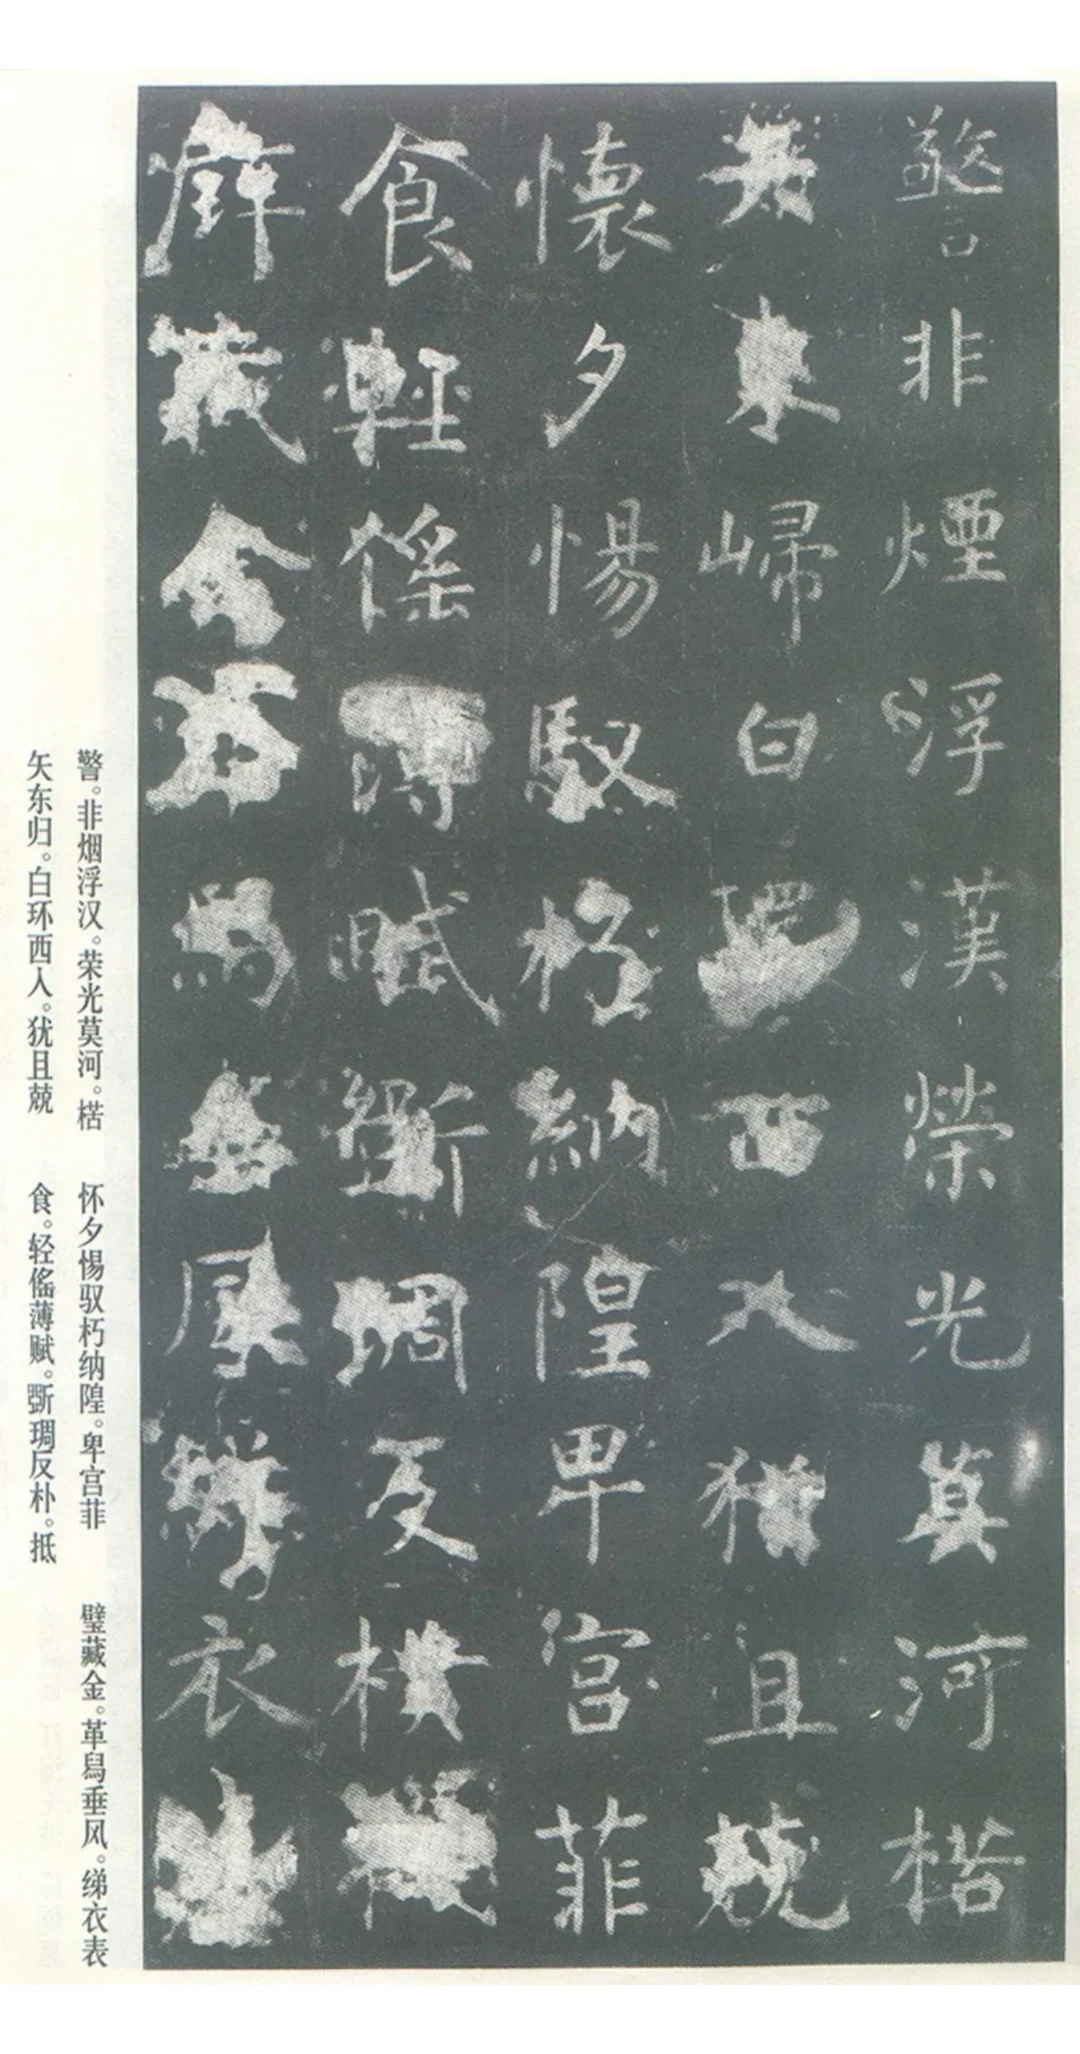 警非煙浮漢榮光莫河楛
矢東歸白環西入猶且兢
懷夕惕馭朽納隍卑宮菲
食輕徭薄賦斲琱反樸抵
璧藏金革舄垂風綈衣表
警。非烟浮汉。荣光莫河。楛
矢东归。白环西入。犹且兢
怀夕惕驭朽纳隍。卑宫菲
食。轻徭薄赋。斲琱反朴。抵
璧藏金。革舄垂风。绨衣表